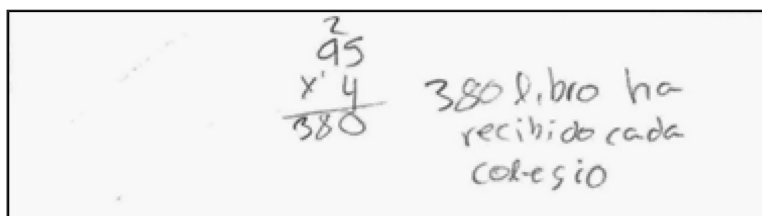 2
95
x 4
380
380 libro ha
recibido cada
colegio